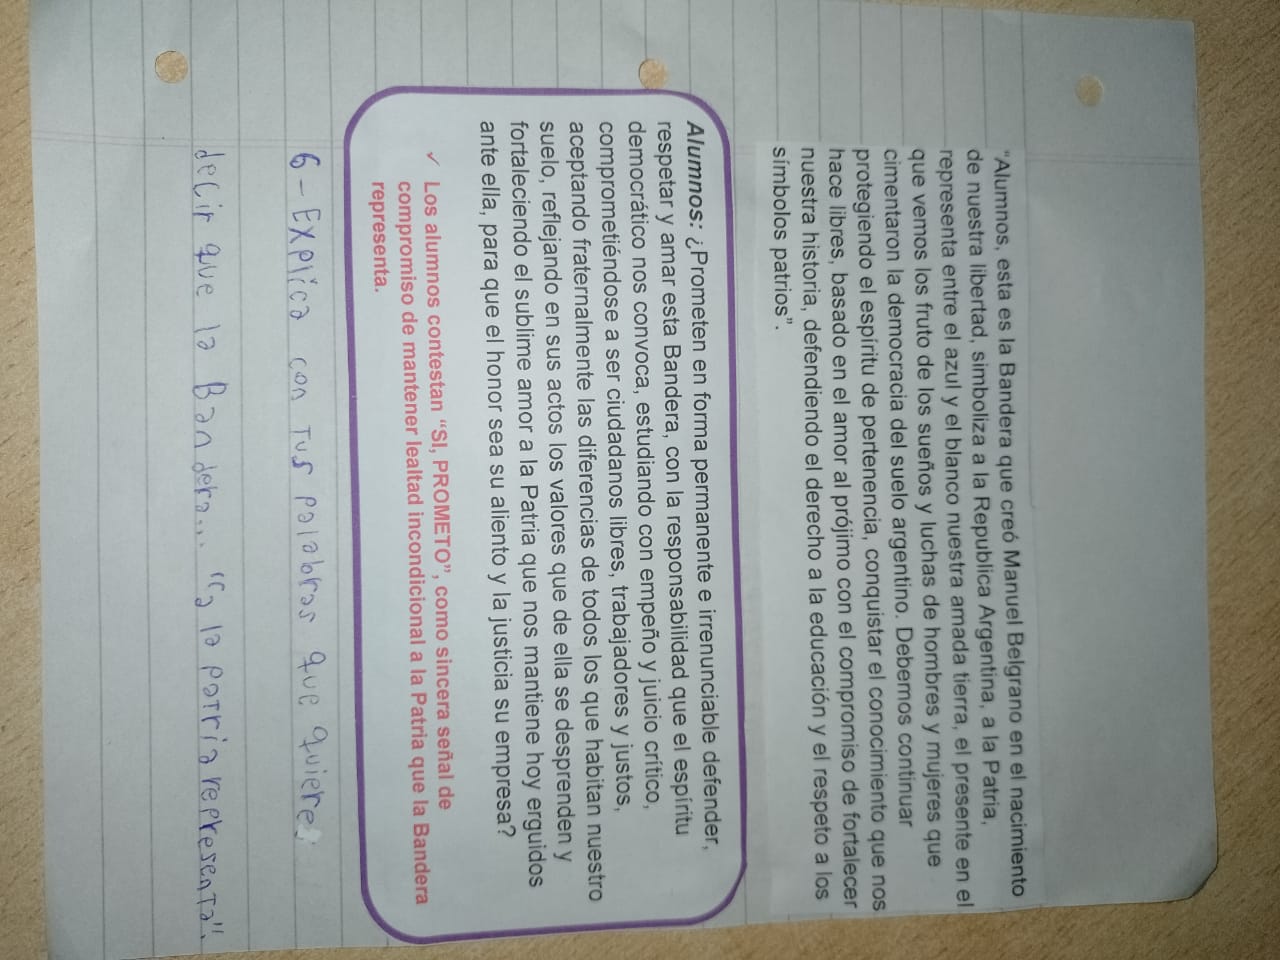 “Alumnos, esta es la Bandera que creó Manuel Belgrano en el nacimiento
de nuestra libertad, simboliza a la Republica Argentina, a la Patria,
representa entre el azul y el blanco nuestra amada tierra, el presente en el
que vemos los fruto de los sueños y luchas de hombres y mujeres que
cimentaron la democracia del suelo argentino. Debemos continuar
protegiendo el espíritu de pertenencia, conquistar el conocimiento que nos
hace libres, basado en el amor al prójimo con el compromiso de fortalecer
nuestra historia, defendiendo el derecho a la educación y el respeto a los
símbolos patrios”.
Alumnos: ¿Prometen en forma permanente e irrenunciable defender,
respetar y amar esta Bandera, con la responsabilidad que el espíritu
democrático nos convoca, estudiando con empeño y juicio crítico,
comprometiéndose a ser ciudadanos libres, trabajadores y justos,
aceptando fraternalmente las diferencias de todos los que habitan nuestro
suelo, reflejando en sus actos los valores que de ella se desprenden y
fortaleciendo el sublime amor a la Patria que nos mantiene hoy erguidos
ante ella, para que el honor sea su aliento y la justicia su empresa?
✓ Los alumnos contestan “SI, PROMETO”, como sincera señal de
compromiso de mantener lealtad incondicional a la Patria que la Bandera
representa.
6 - Explica con tus palabras que quiere
decir que la Bandera... "a la patria representa".